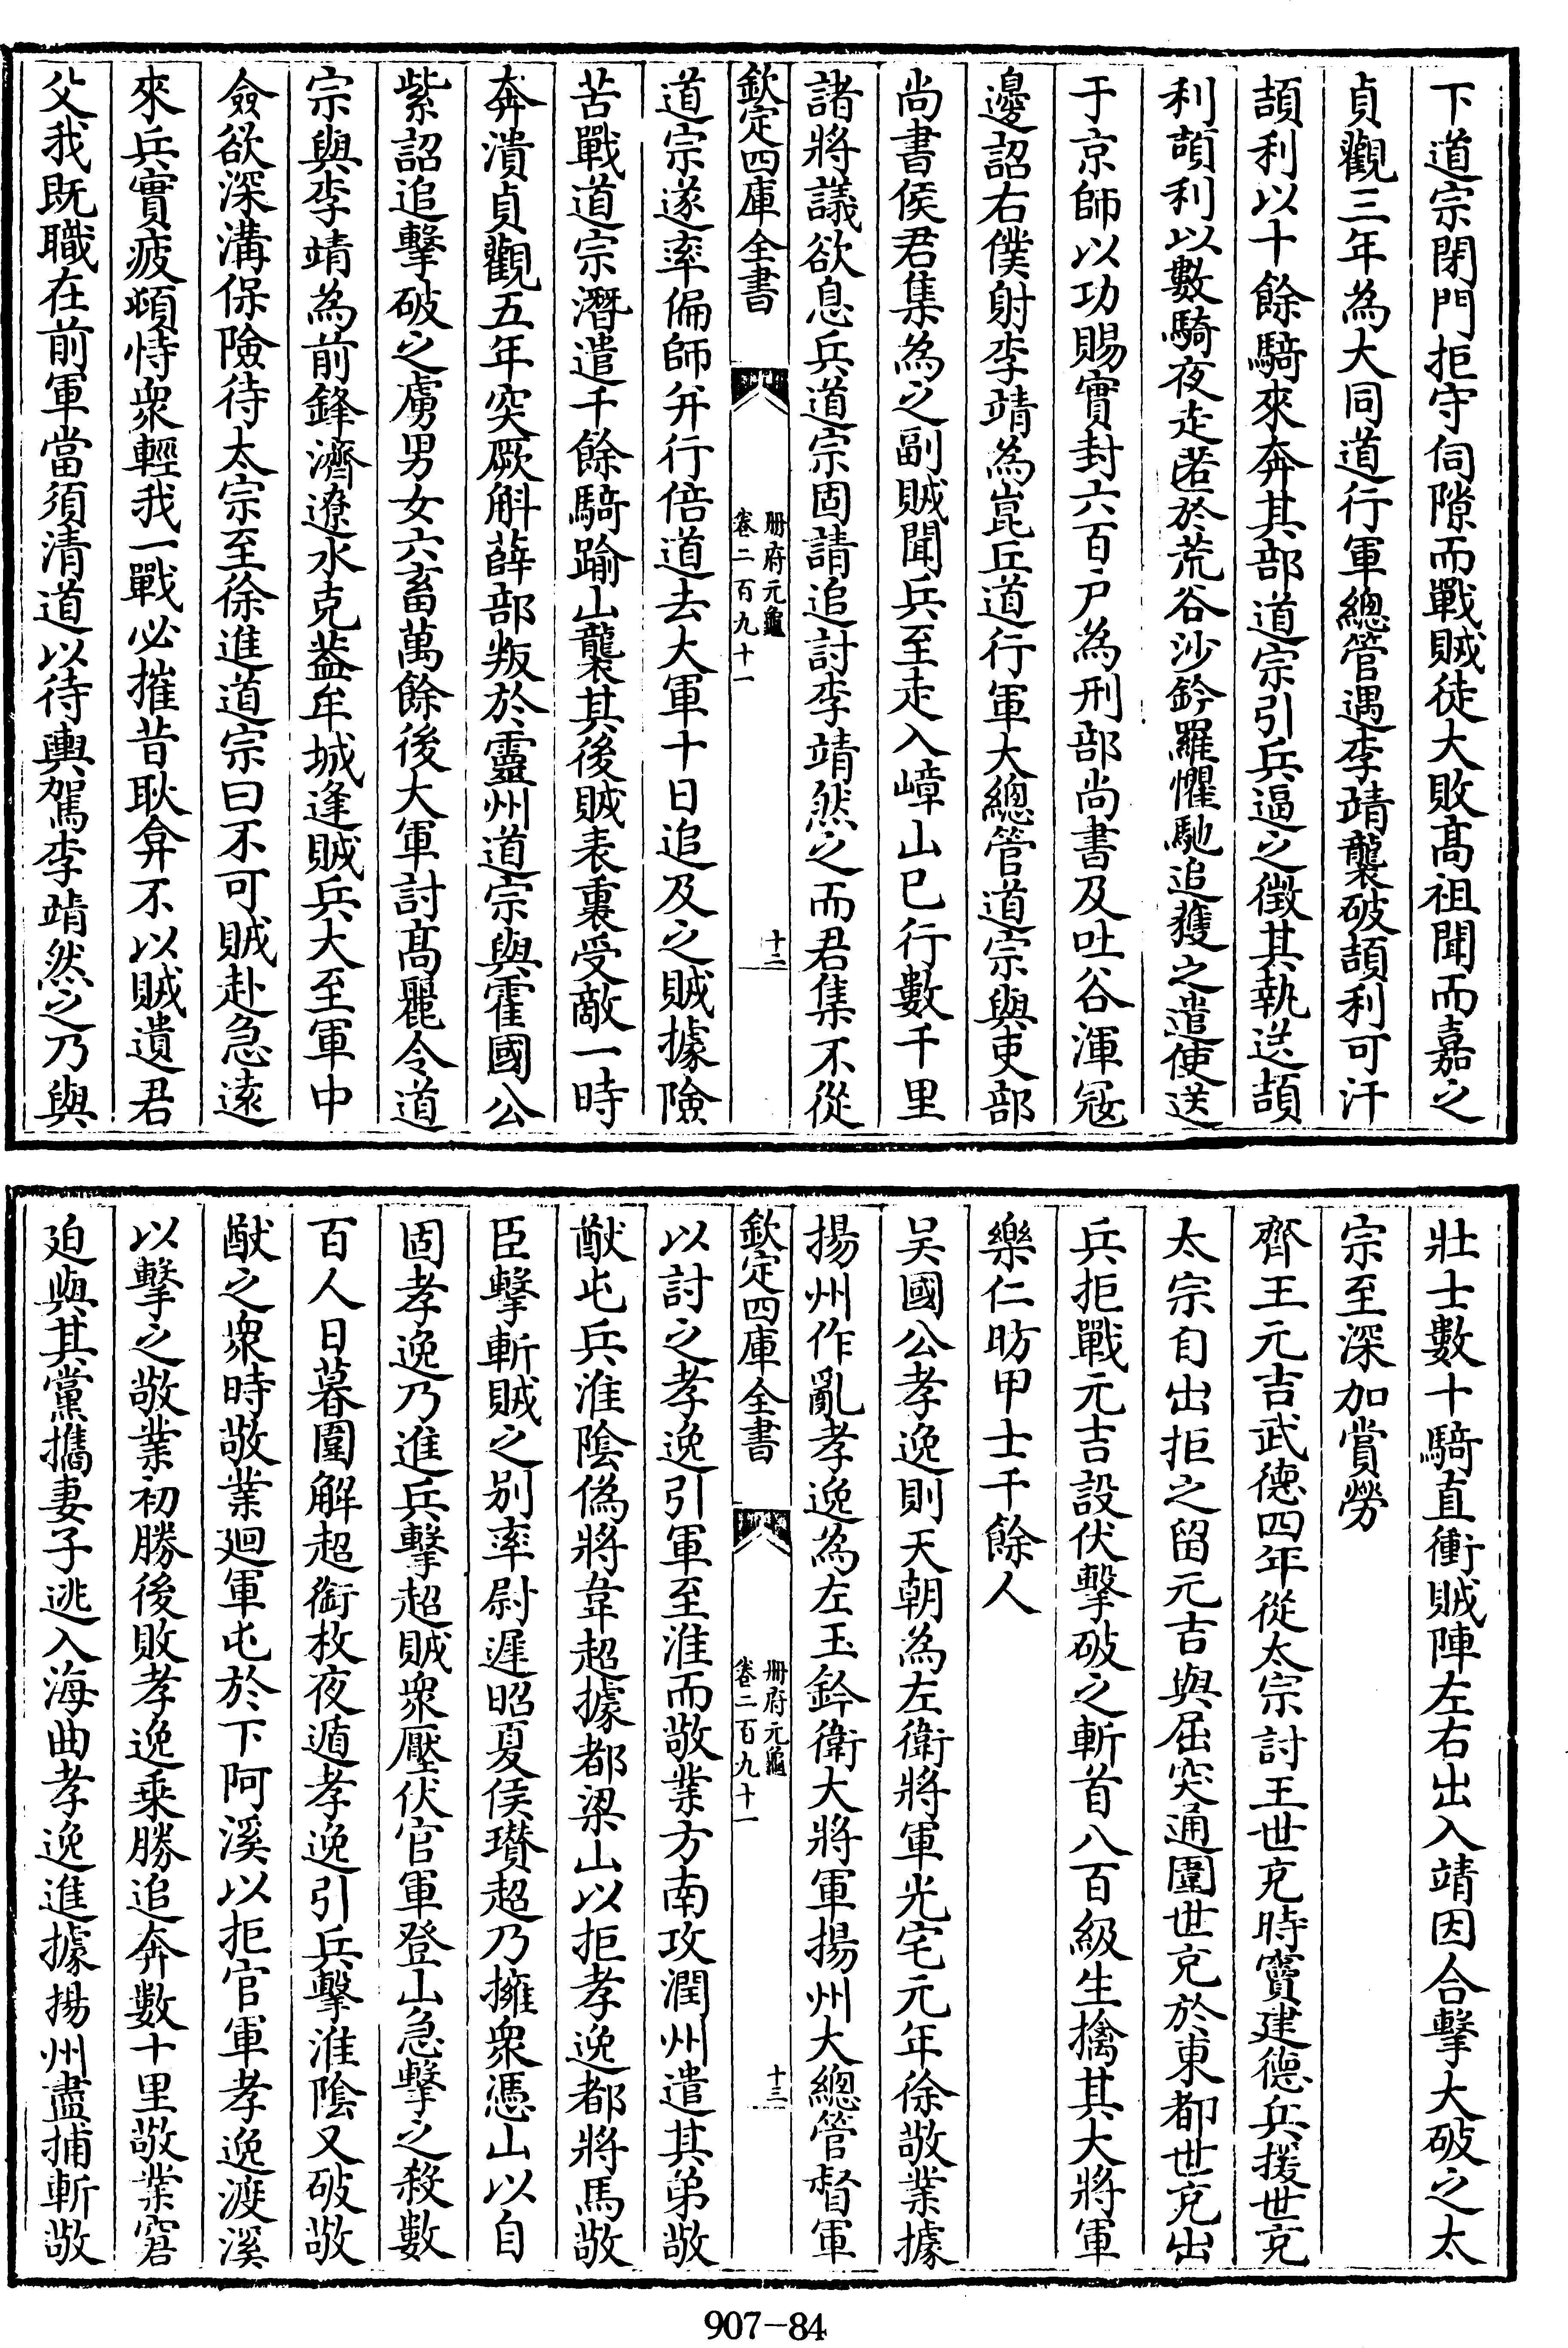 下道宗閉門拒守伺隙而戰賊徒大敗髙祖聞而嘉之
貞觀三年為大同道行軍總管遇李靖襲破頡利可汗
頡利以十餘騎來奔其部道宗引兵逼之徵其執送頡
利頡利以數騎夜走匿於荒谷沙鈴羅懼馳追獲之遣使送
于京師以功賜實封六百户為刑部尚書及吐谷渾冦
邊詔右僕射李靖為崑丘道行軍大總管道宗與吏部
尚書侯君集為之副賊聞兵至走入嶂山已行數千里
諸將議欲息兵道宗固請追討李靖然之而君集不從
欽定四庫全書
册府元龜
卷二百九十一
十二
道宗遂率偏師并行倍道去大軍十日追及之賊據險
苦戰道宗潛遣千餘騎踰山襲其後賊表裏受敵一時
奔潰貞觀五年突厥斛薛部叛於靈州道宗與霍國公
紫詔追擊破之虜男女六畜萬餘後大軍討髙麗令道
宗與李靖為前鋒濟遼水克葢牟城逢賊兵大至軍中
僉欲深溝保險待太宗至徐進道宗曰不可賊赴急逺
來兵實疲頓恃衆輕我一戰必摧昔耿弇不以賊遺君
父我既職在前軍當須清道以待輿駕李靖然之乃與
壯士數十騎直衝賊陣左右出入靖因合擊大破之太
宗至深加賞勞
齊王元吉武德四年從太宗討王世充時竇建德兵援世充
太宗自出拒之留元吉與屈突通圍世充於東都世充出
兵拒戰元吉設伏擊破之斬首八百級生擒其大將軍
樂仁昉甲士千餘人
吳國公孝逸則天朝為左衛將軍光宅元年徐敬業據
揚州作亂孝逸為左玉鈐衛大將軍揚州大總管督軍
欽定四庫全書
册府元龜
卷二百九十一
十三
以討之孝逸引軍至淮而敬業方南攻潤州遣其弟敬
猷屯兵淮隂偽將韋超據都梁山以拒孝逸都將馬敬
臣擊斬賊之别率尉遲昭夏侯瓚超乃擁衆憑山以自
固孝逸乃進兵擊超賊衆壓伏官軍登山急擊之殺數
百人日暮圍解超銜枚夜遁孝逸引兵擊淮隂又破敬
猷之衆時敬業廻軍屯於下阿溪以拒官軍孝逸渡溪
以擊之敬業初勝後敗孝逸乘勝追奔數十里敬業窘
廹與其黨攜妻子逃入海曲孝逸進據揚州盡捕斬敬
907-84